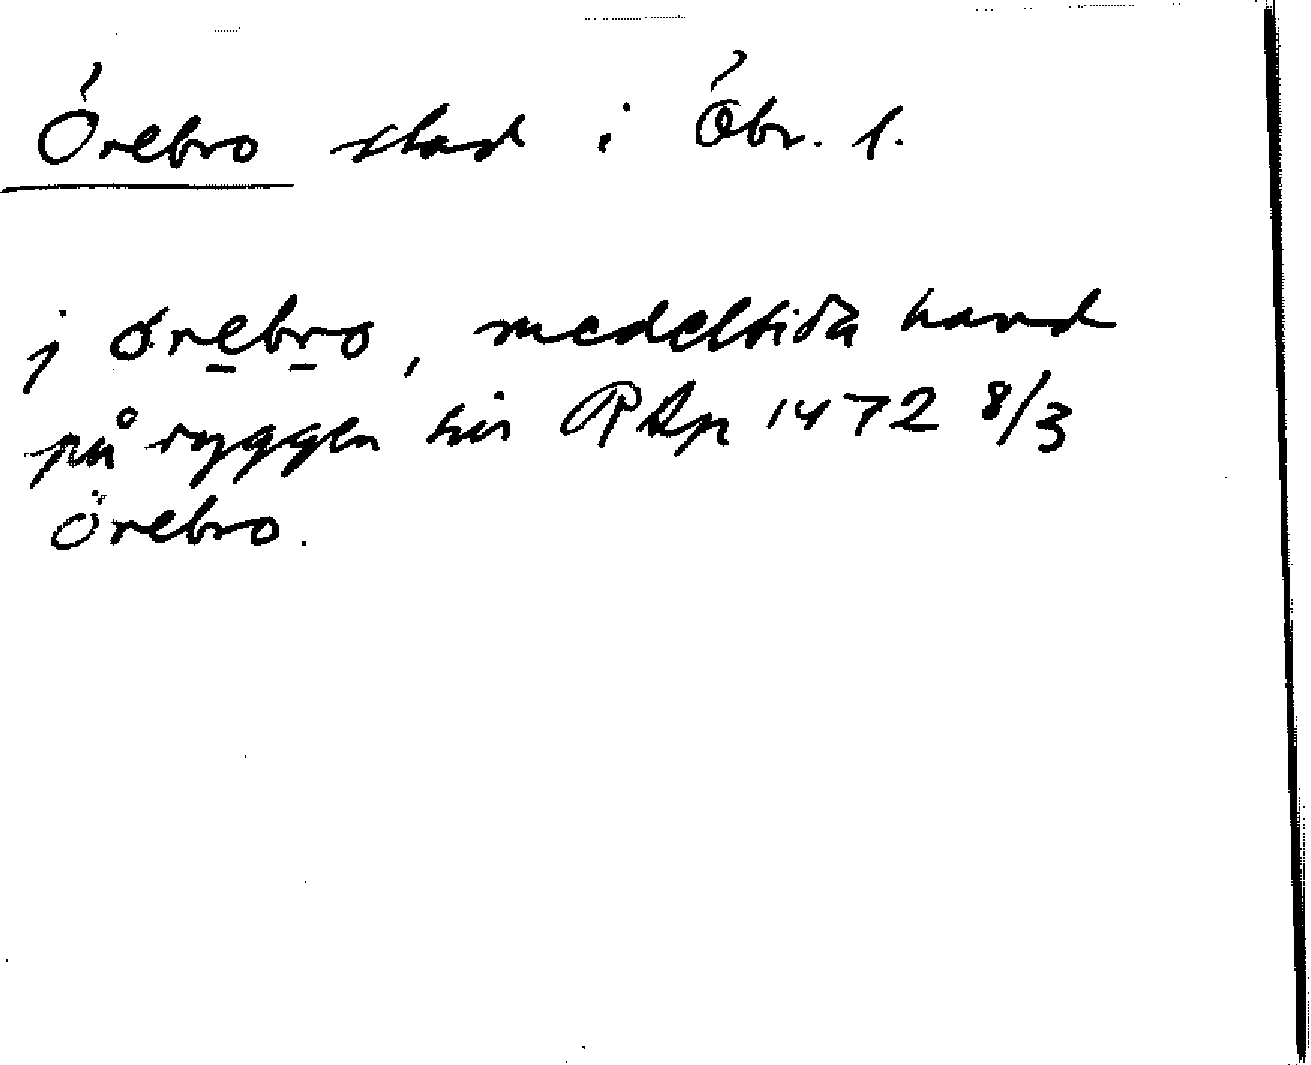 Örebro stad i Öbr. l.
j örebro, medeltida hand
på ryggen till RAp 1472 8/3
Örebro.